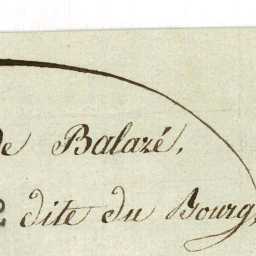 de Balazé,
dite du Bourg,